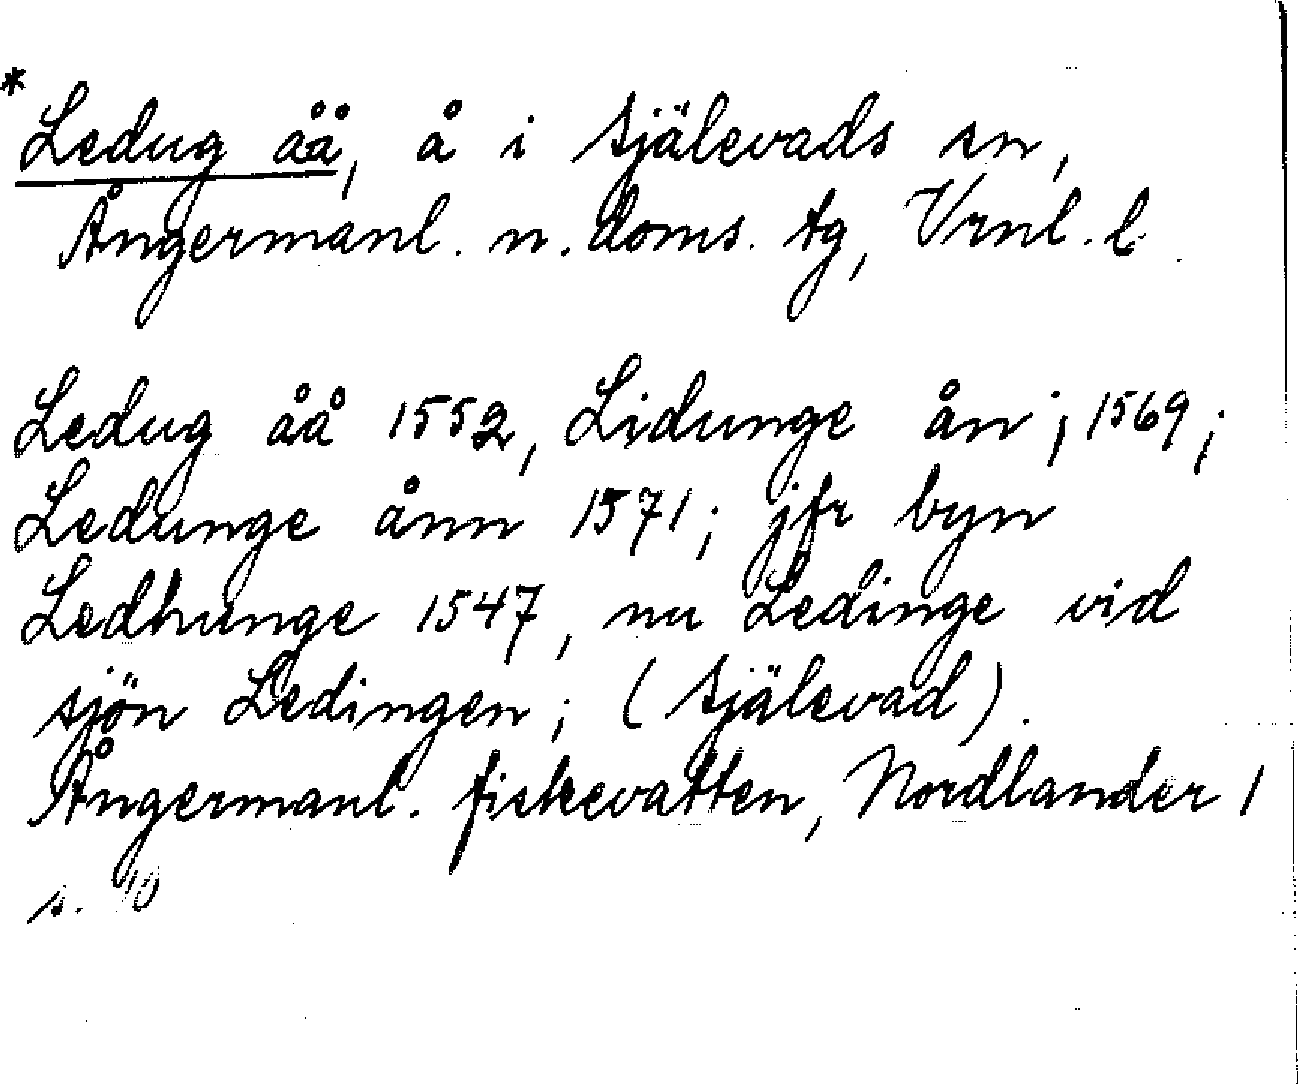 * Ledug åå, å i Själevads sn,
Ångermanl. n. doms. tg, Vrnl. l.
Ledug åå 1552, Lidunge ån; 1569;
Ledunge ånn 1571; jfr byn
Ledhunge 1547, nu Ledinge vid
sjön Ledingen; (Själevad).
Ångermanl. fiskevatten, Nordlander 1
s. 10